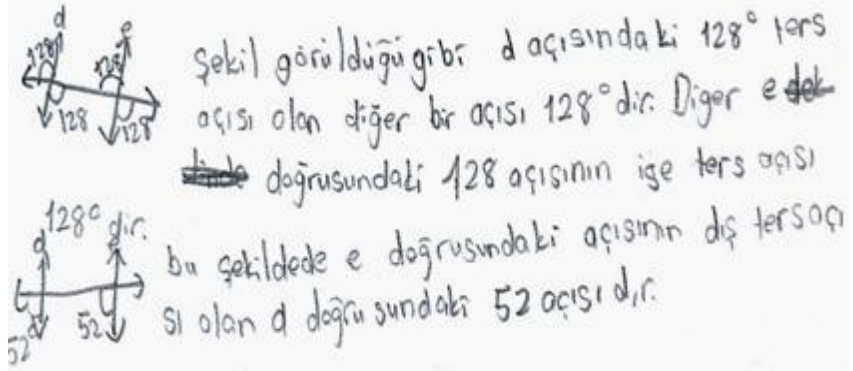 d
e
128
128
128
128
Şekil görüldüğü gibi d açısındaki 128° ters
açısı olan diğer bir açısı 128° dir. Diger e
doğrusundaki 128 açısının ise ters açısı
128° dir.
d
bu şekildede e doğrusundaki açısının dış tersaçı
sı olan d doğrusundaki 52 açısıdır.
52
52